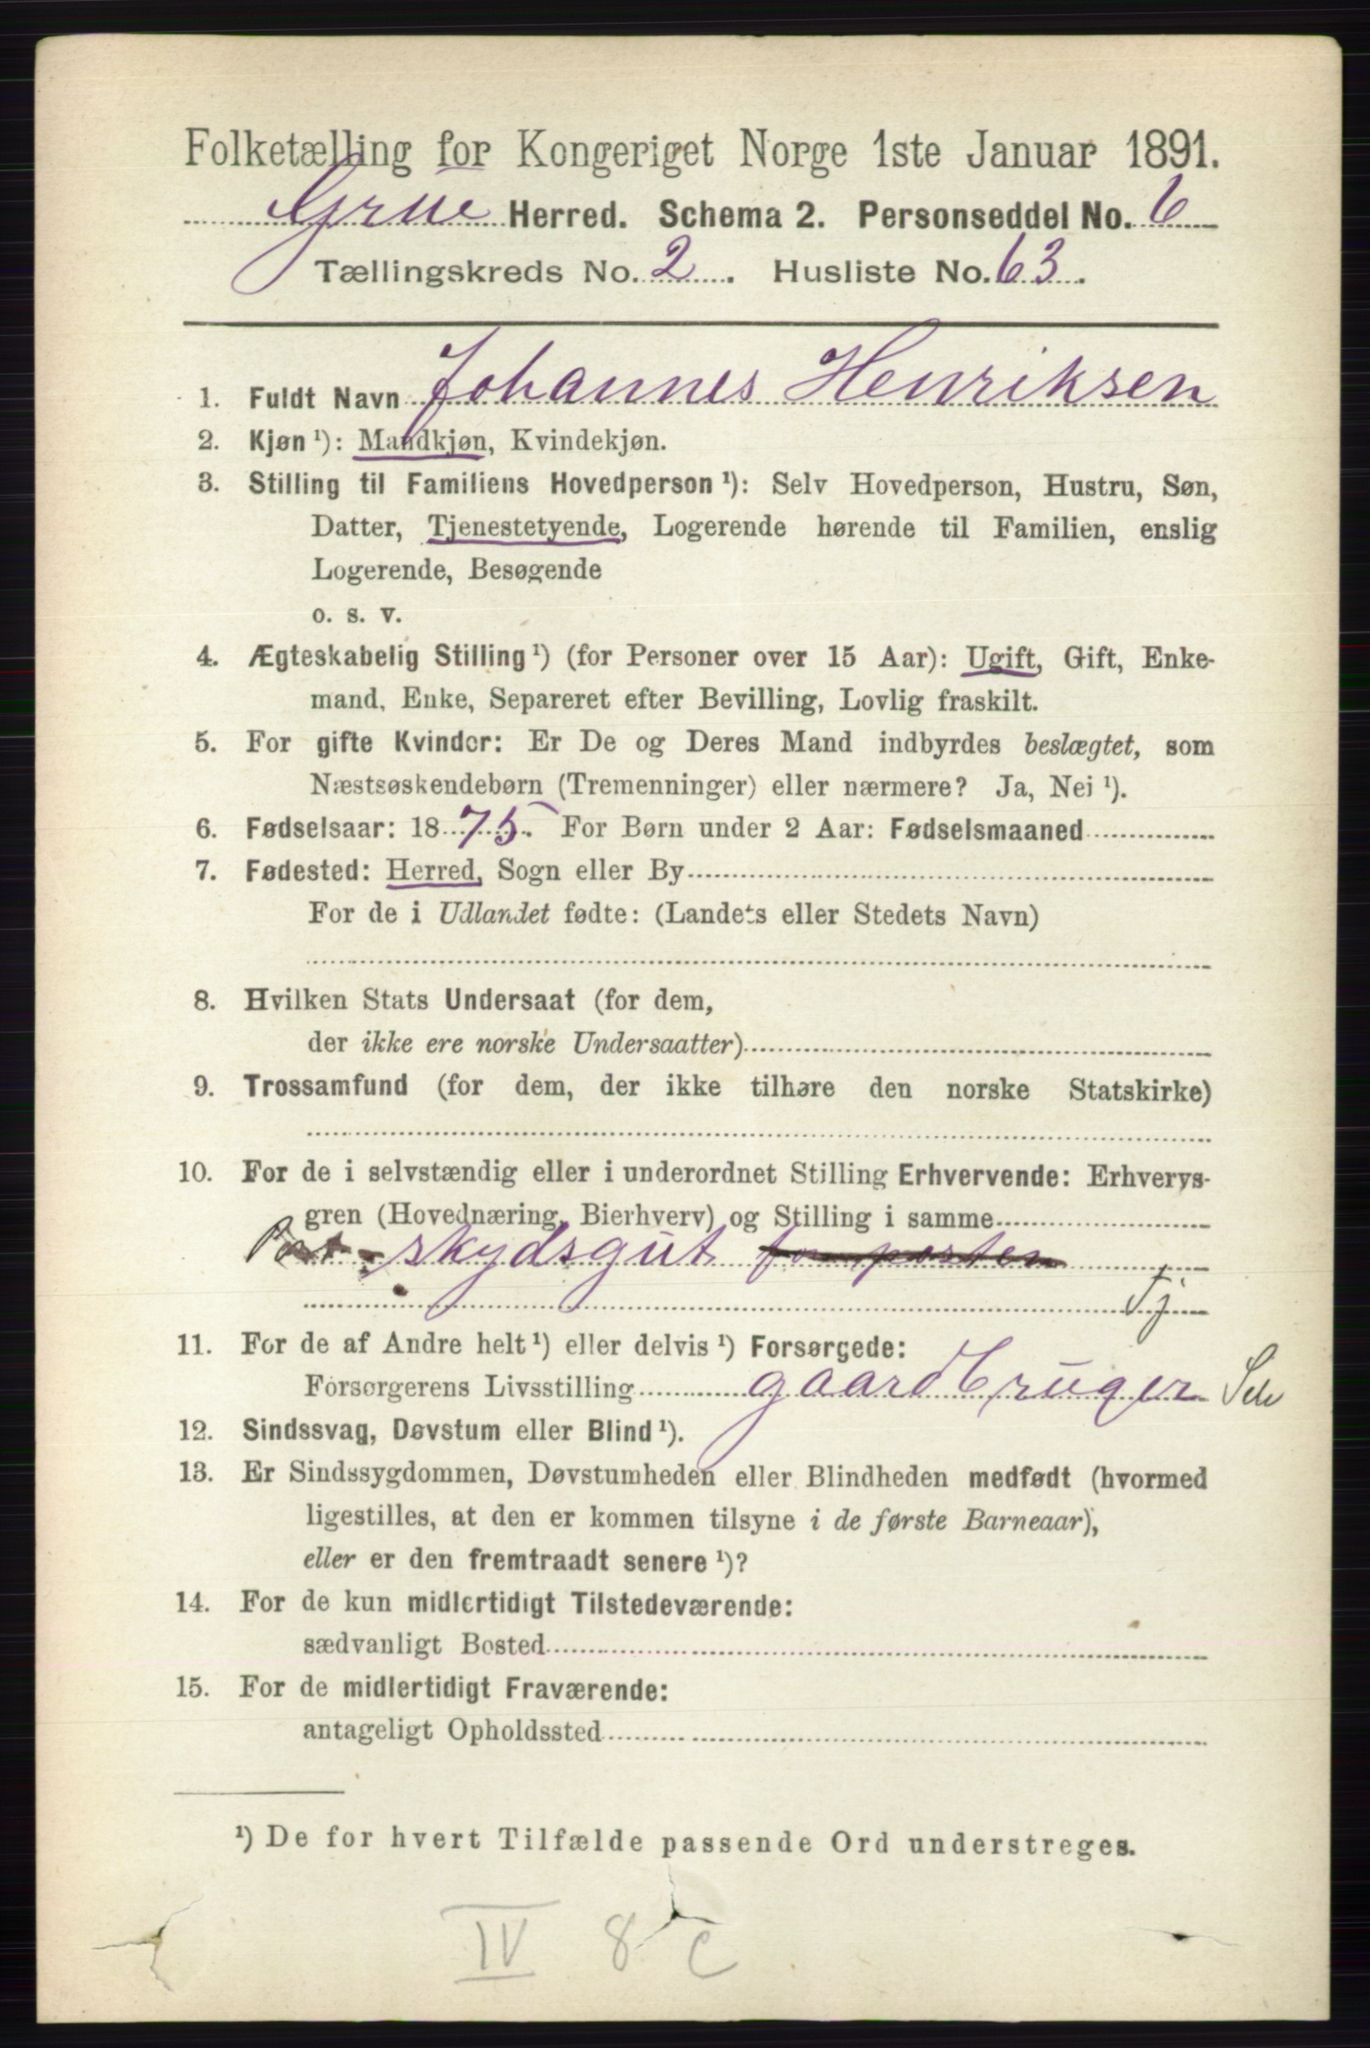 Folketælling for Kongeriget Norge 1ste Januar 1891.
Grue Herred. Schema 2. Personseddel No. 6
Tællingskreds No. 2. Husliste No. 63.
1. Fuldt Navn Johannes Henriksen
2. Kjøn ¹): Mandkjøn, Kvindekjøn.
3. Stilling til Familiens Hovedperson ¹): Selv Hovedperson, Hustru, Søn,
Datter, Tjenestetyende, Logerende hørende til Familien, enslig
Logerende, Besøgende
o. s. v.
4. Ægteskabelig Stilling ¹) (for Personer over 15 Aar): Ugift, Gift, Enke-
mand, Enke, Separeret efter Bevilling, Lovlig fraskilt.
5. For gifte Kvinder: Er De og Deres Mand indbyrdes beslægtet, som
Næstsøskendebørn (Tremenninger) eller nærmere? Ja, Nei ¹).
6. Fødselsaar: 1875. For Børn under 2 Aar: Fødselsmaaned
7. Fødested: Herred, Sogn eller By
For de i Udlandet fødte: (Landets eller Stedets Navn)
8. Hvilken Stats Undersaat (for dem,
der ikke ere norske Undersaatter)
9. Trossamfund (for dem, der ikke tilhøre den norske Statskirke)
10. For de i selvstændig eller i underordnet Stilling Erhvervende: Erhvervs-
gren (Hovednæring, Bierhverv) og Stilling i samme
Post-skydsgut for posten
Tj
11. For de af Andre helt ¹) eller delvis ¹) Forsørgede:
Forsørgerens Livsstilling gaardbruger Selv
12. Sindssvag, Døvstum eller Blind ¹).
13. Er Sindssygdommen, Døvstumheden eller Blindheden medfødt (hvormed
ligestilles, at den er kommen tilsyne i de første Barneaar),
eller er den fremtraadt senere ¹)?
14. For de kun midlertidigt Tilstedeværende:
sædvanligt Bosted
15. For de midlertidigt Fraværende:
antageligt Opholdssted
¹) De for hvert Tilfælde passende Ord understreges.
IV 8 C